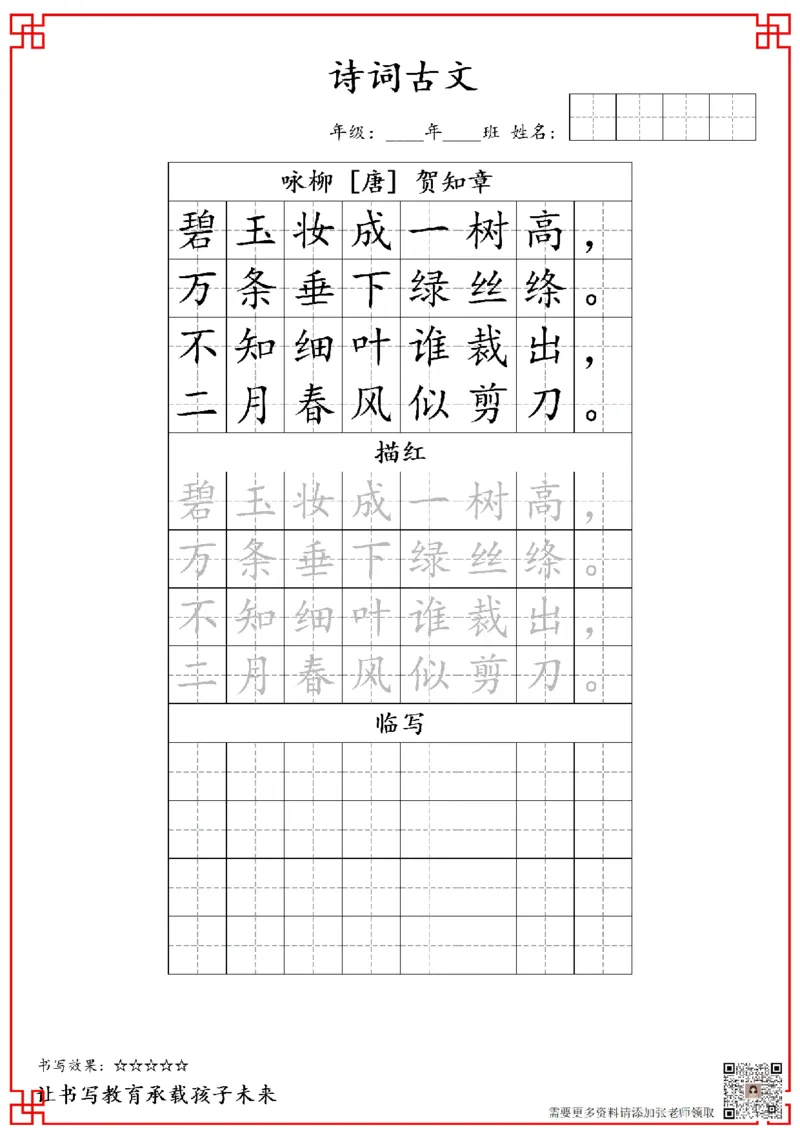 诗词古文
年级：____年____班 姓名：
咏柳 [唐] 贺知章
碧玉妆成一树高，
万条垂下绿丝绦。
不知细叶谁裁出，
二月春风似剪刀。
描红
碧玉妆成一树高，
万条垂下绿丝绦。
不知细叶谁裁出，
二月春风似剪刀。
临写
书写效果：☆☆☆☆☆
让书写教育承载孩子未来
需要更多资料请添加张老师领取